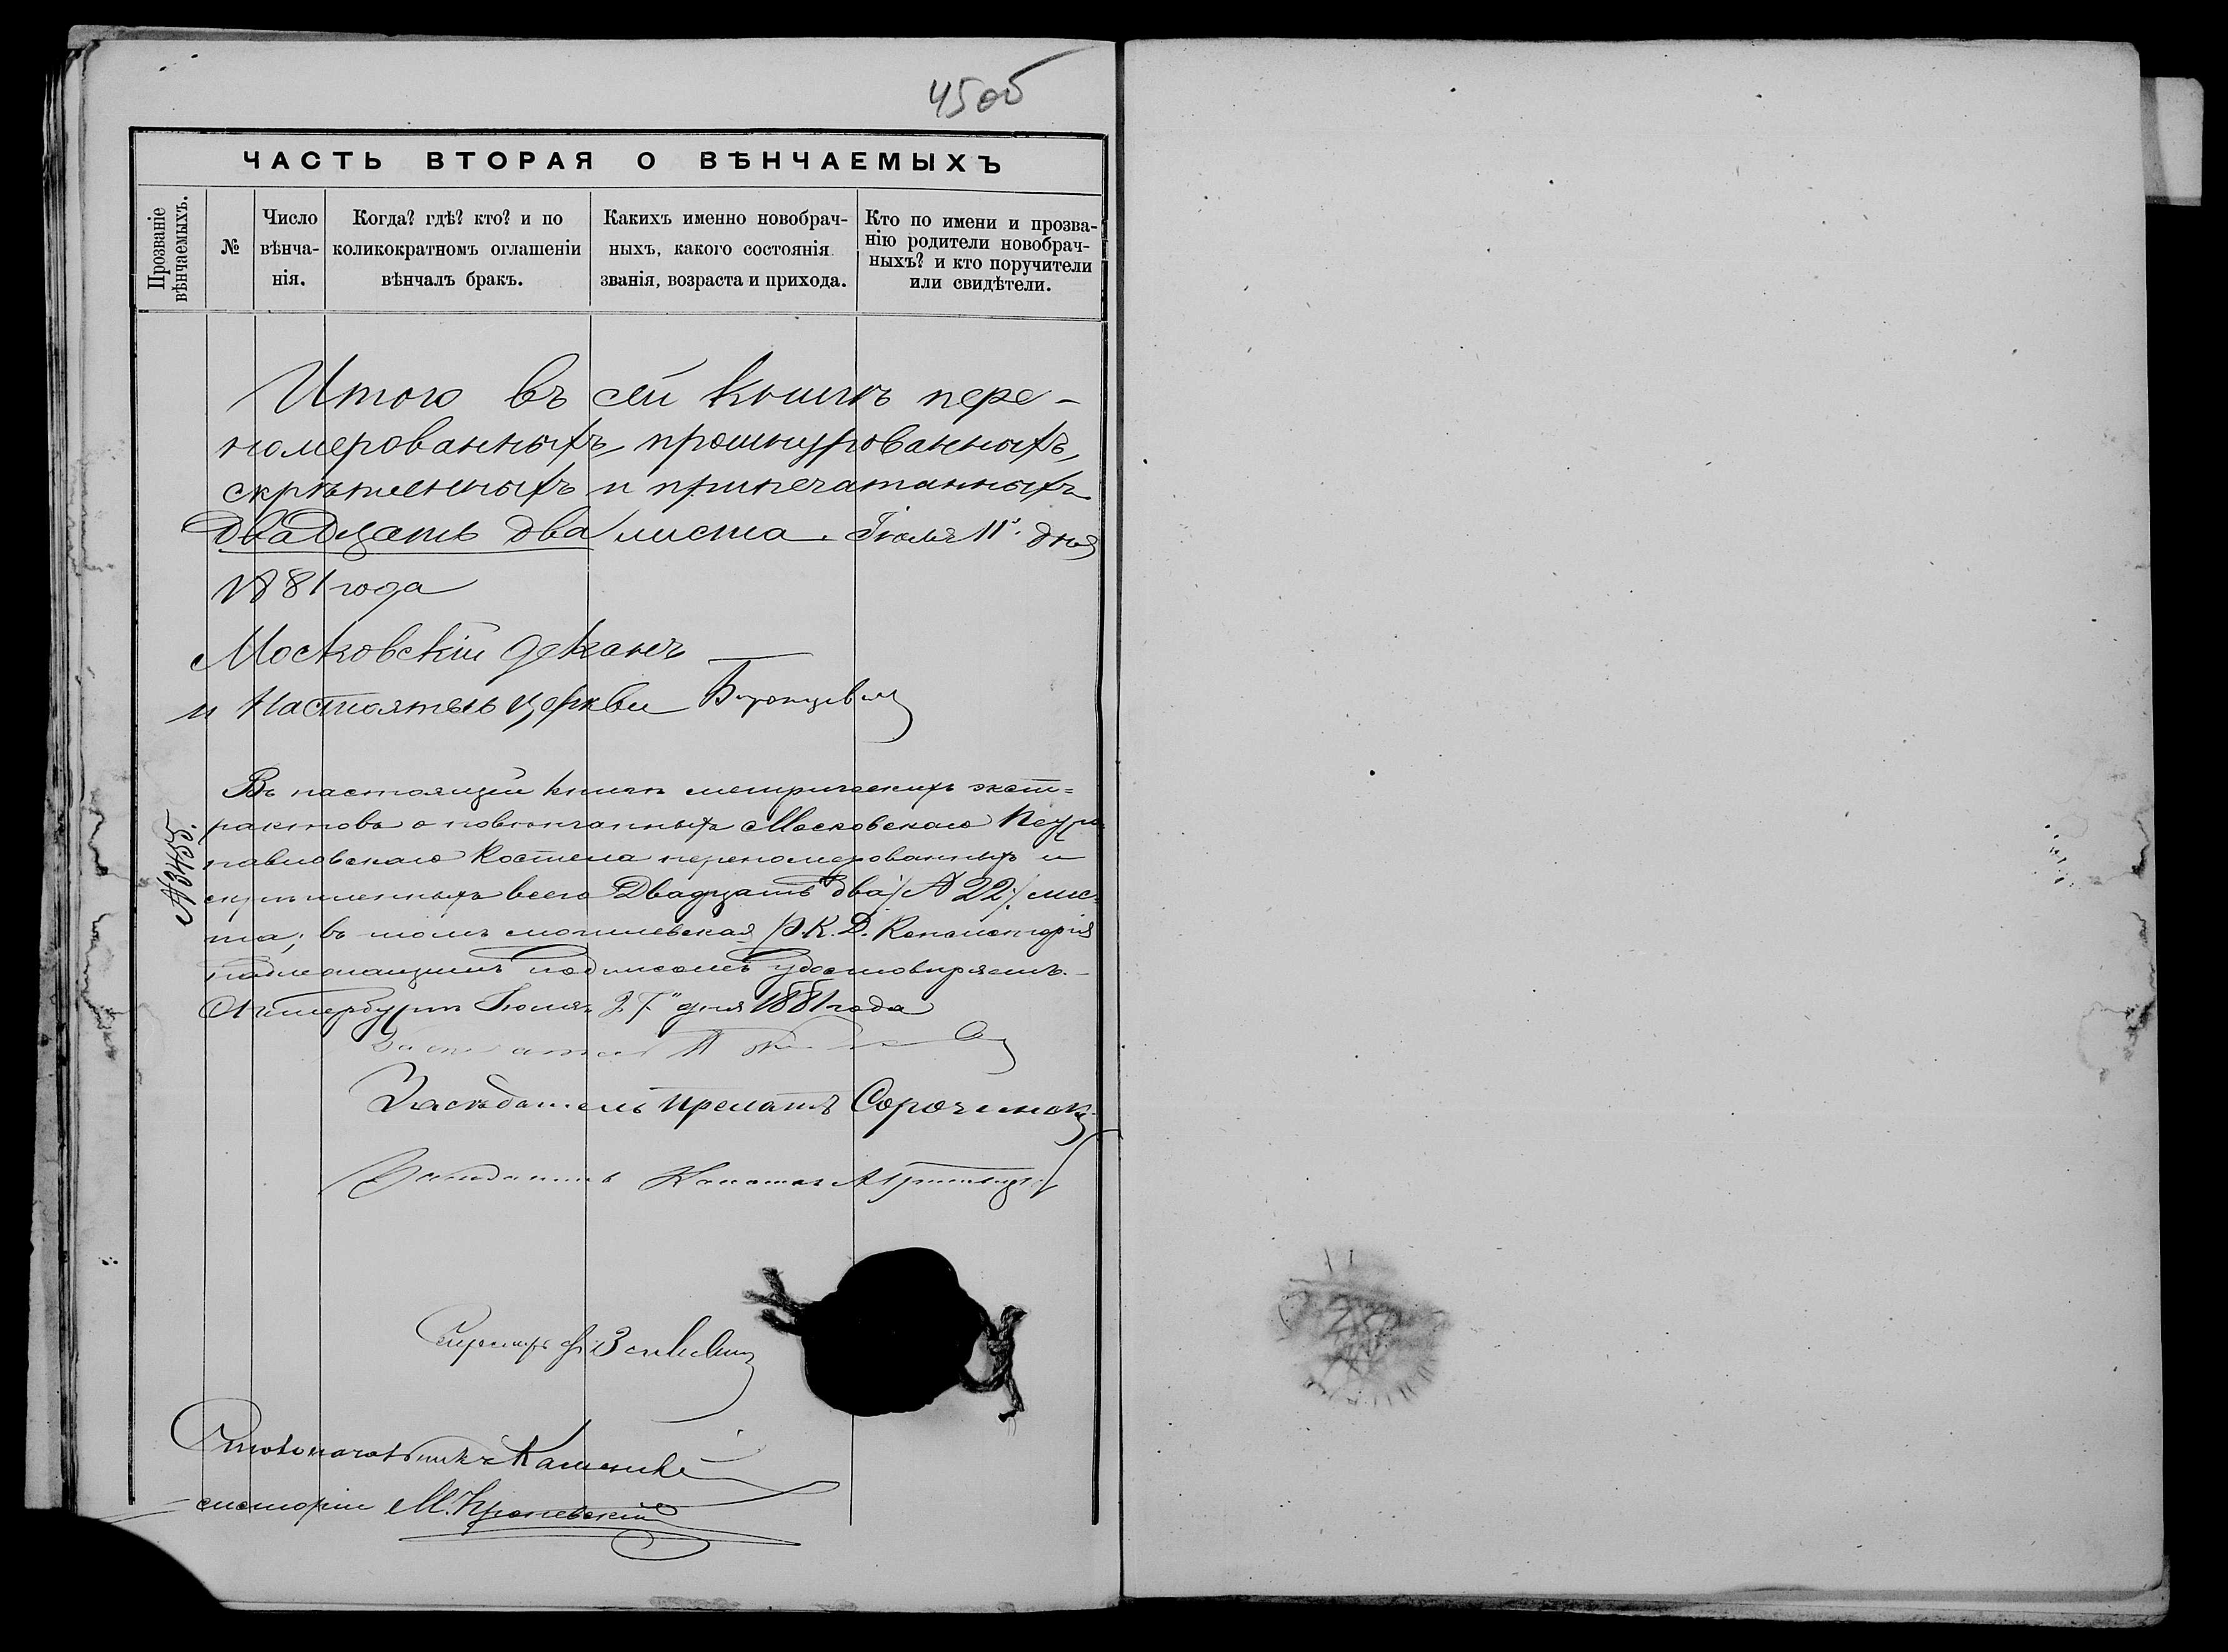 45об
ЧАСТЬ ВТОРАЯ О ВѢНЧАЕМЫХЪ
Прозваніе
вѣнчаемыхъ.
№
Число
вѣнча-
нія.
Когда? гдѣ? кто? и по
коликократномъ оглашеніи
вѣнчалъ бракъ.
Какихъ именно новобрач-
ныхъ, какого состоянія
званія, возраста и прихода.
Кто по имени и прозва-
нію родители новобрач-
ныхъ? и кто поручители
или свидѣтели.
Итого въ сей книгѣ пере-
номерованныхъ, прошнурованныхъ,
скрѣпленныхъ и припечатанныхъ
двадцать два листа. Іюля 11. дня
1881 года
Московскій деканъ
и Настоятель церкви
Въ настоящей книгѣ метрическихъ экст=
рактовъ о повѣнчанныхъ Московскаго Петро
павловскаго Костела переномерованныхъ и
скрѣпленныхъ всего Двадцать два /№ 22/. лис=
та; въ томъ Могилевская Р.К.Д. Консисторія
надлежащимъ подписомъ удостовѣряетъ.-
С.Петербургъ Іюля 27" дня 1881 года
№3455.
Засѣдатель Прелатъ
Засѣдатель Каноникъ
Секретарь
Столоначальникъ
систоріи М.